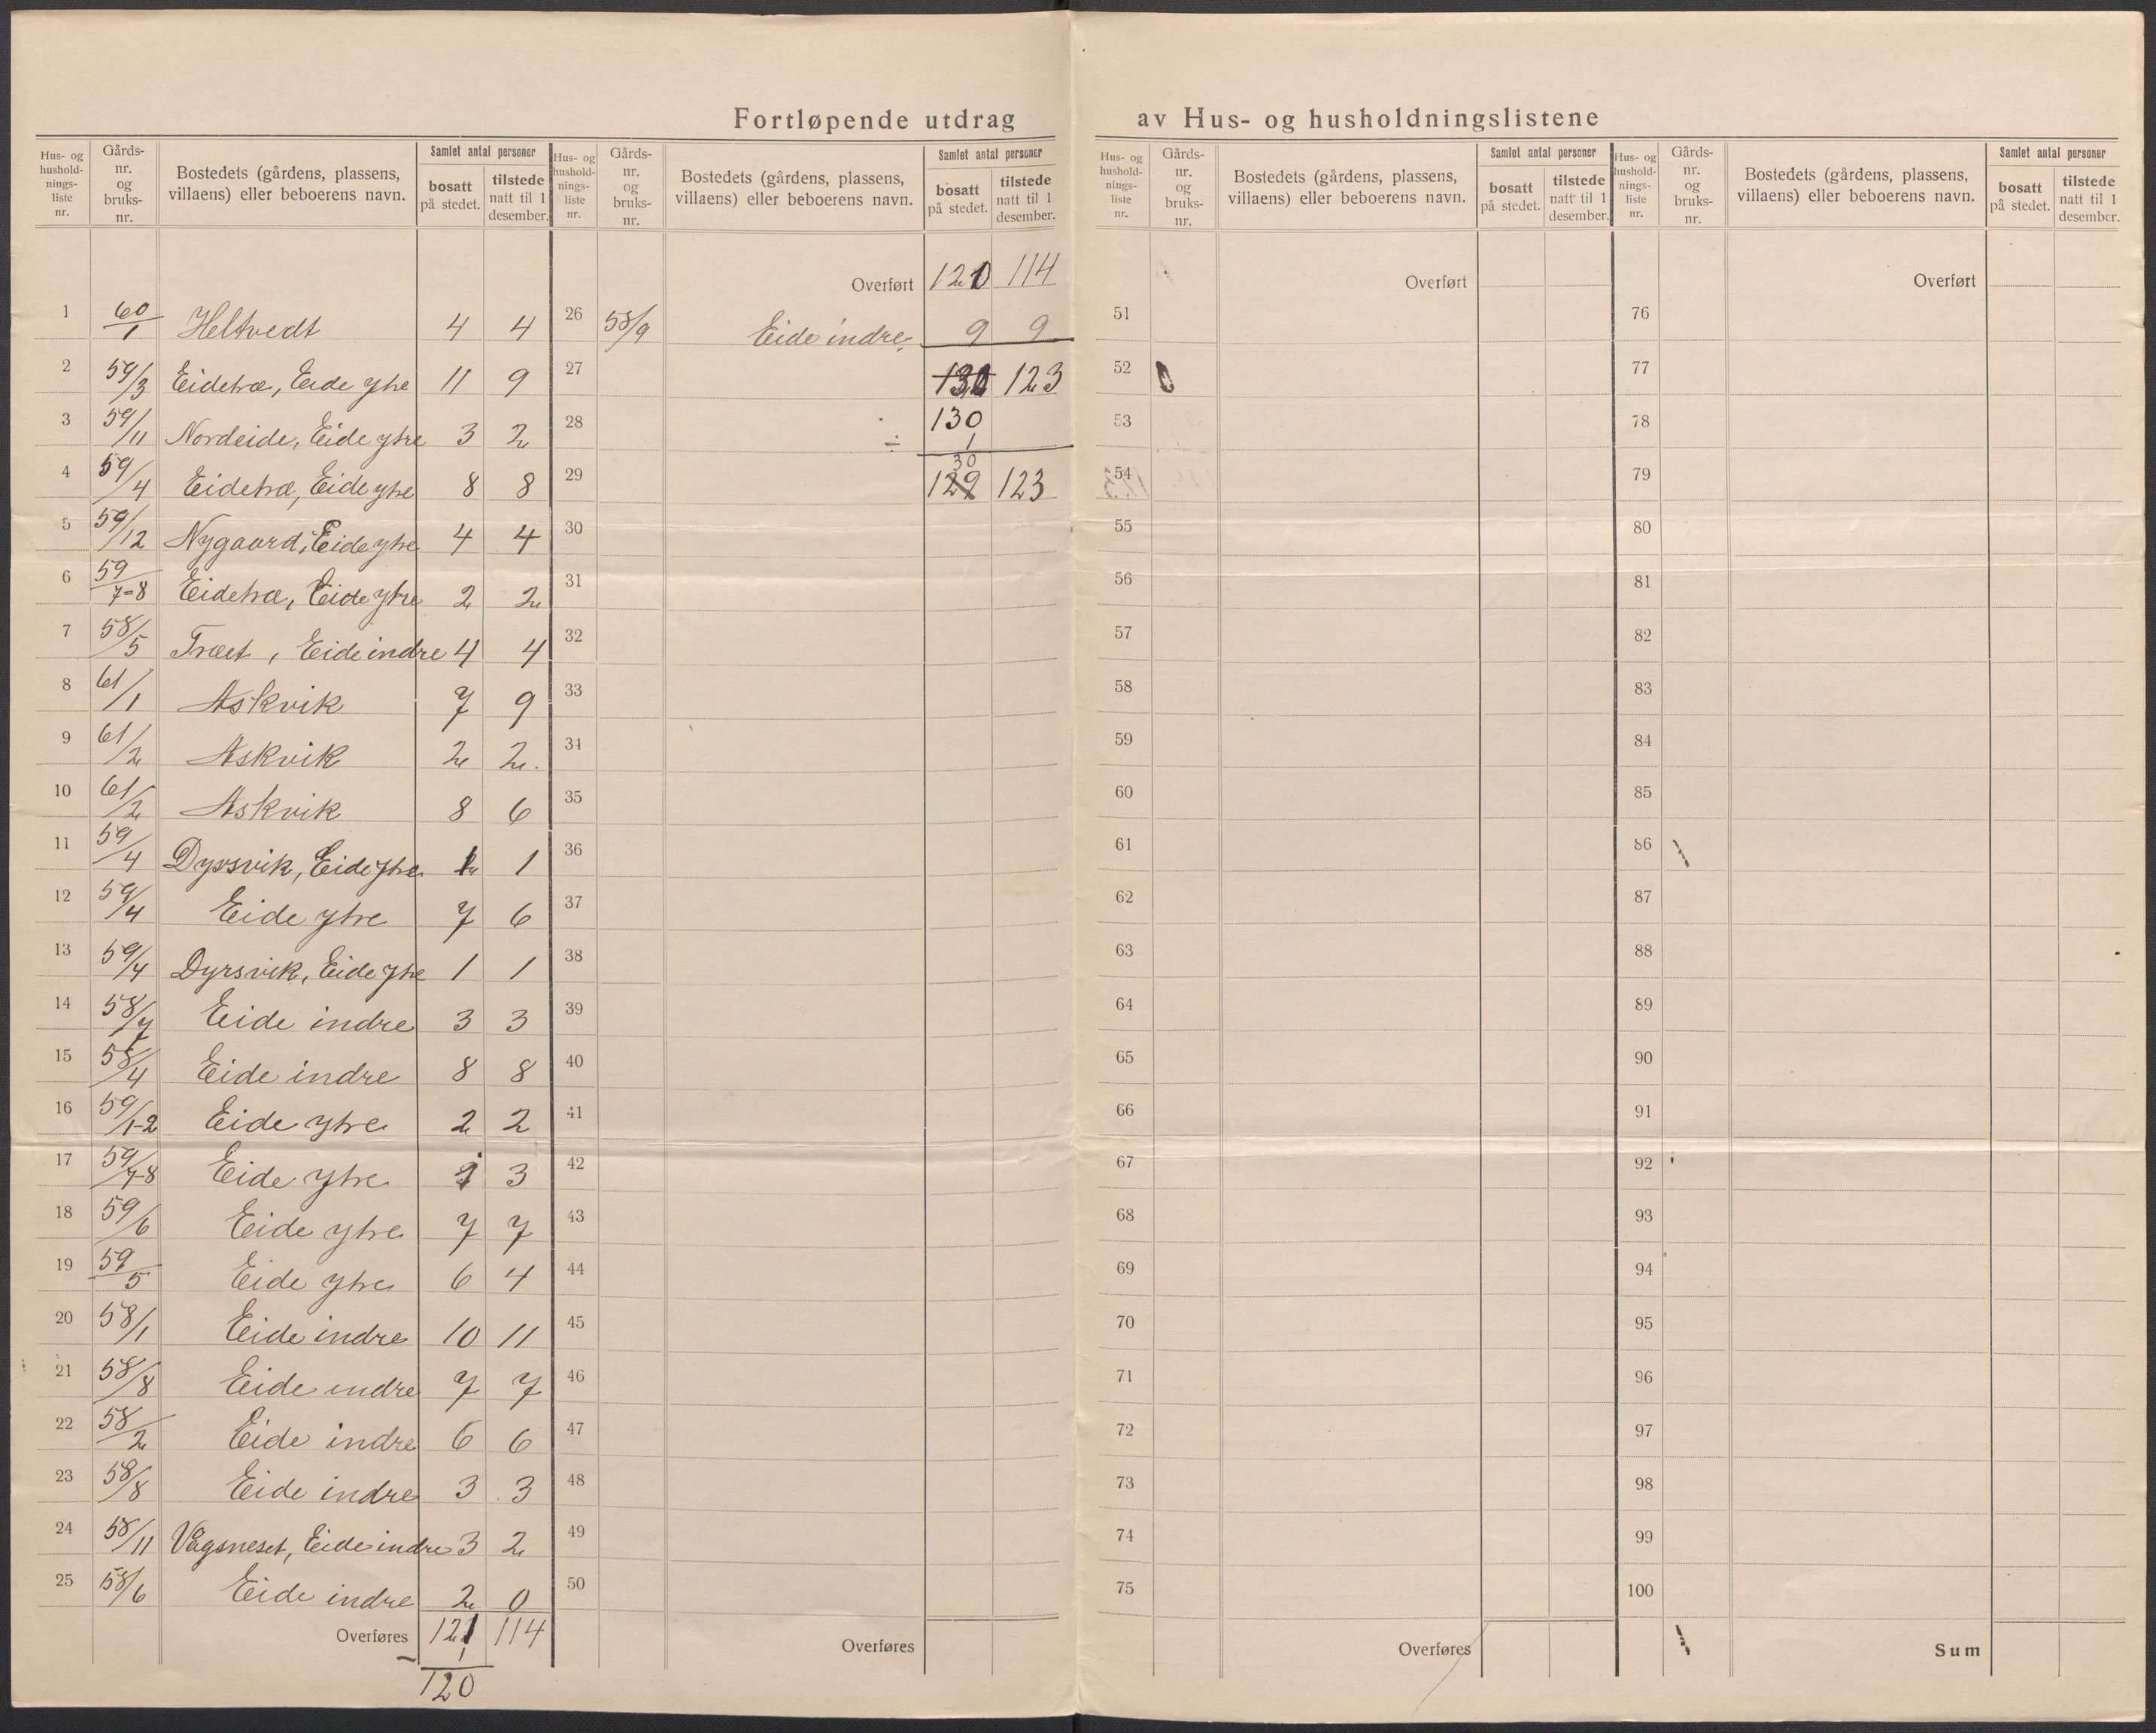 Fortløpende utdrag av Hus- og husholdningslistene
Hus- og hushold-nings-liste nr. Gårds-nr. og bruks-nr. Bostedets (gårdens, plassens, villaens) eller beboerens navn. Samlet antal personer bosatt på stedet. tilstede natt til 1 desember.
1 60/1 Heltvedt 4 4
2 59/3 Eidetræ, Eide ytre 11 9
3 59/11 Nordeide, Eide ytre 3 2
4 59/4 Eidetræ, Eide ytre 8 8
5 59/12 Nygaard, Eide ytre 4 4
6 59/7-8 Eidetræ, Eide ytre 2 2
7 58/5 Træet, Eide indre 4 4
8 61/1 Askvik 7 9
9 61/2 Askvik 2 2
10 61/2 Askvik 8 6
11 59/4 Dyrsvik, Eide ytre 1 1
12 59/4 Eide ytre 7 6
13 59/4 Dyrsvik, Eide ytre 1 1
14 58/7 Eide indre 3 3
15 58/4 Eide indre 8 8
16 59/1-2 Eide ytre 2 2
17 59/7-8 Eide ytre 3
18 59/6 Eide ytre 7 7
19 59/5 Eide ytre 6 4
20 58/1 Eide indre 10 11
21 58/8 Eide indre 7 7
22 58/2 Eide indre 6 6
23 58/8 Eide indre 3 3
24 58/11 Vågsneset, Eide indre 3 2
25 58/6 Eide indre 2 0
Overføres 121 114
- 1
120
Hus- og hushold-nings-liste nr. Gårds-nr. og bruks-nr. Bostedets (gårdens, plassens, villaens) eller beboerens navn. Samlet antal personer bosatt på stedet. tilstede natt til 1 desember.
Overført 120 114
26 58/9 Eide indre 9 9
27 130 123
28 130
÷ 1
30
29 129 123
30
31
32
33
34
35
36
37
38
39
40
41
42
43
44
45
46
47
48
49
50
Overføres
Hus- og hushold-nings-liste nr. Gårds-nr. og bruks-nr. Bostedets (gårdens, plassens, villaens) eller beboerens navn. Samlet antal personer bosatt på stedet. tilstede natt til 1 desember.
Overført
51
52
53
54
55
56
57
58
59
60
61
62
63
64
65
66
67
68
69
70
71
72
73
74
75
Overføres
Hus- og hushold-nings-liste nr. Gårds-nr. og bruks-nr. Bostedets (gårdens, plassens, villaens) eller beboerens navn. Samlet antal personer bosatt på stedet. tilstede natt til 1 desember.
Overført
76
77
78
79
80
81
82
83
84
85
86
87
88
89
90
91
92
93
94
95
96
97
98
99
100
Sum